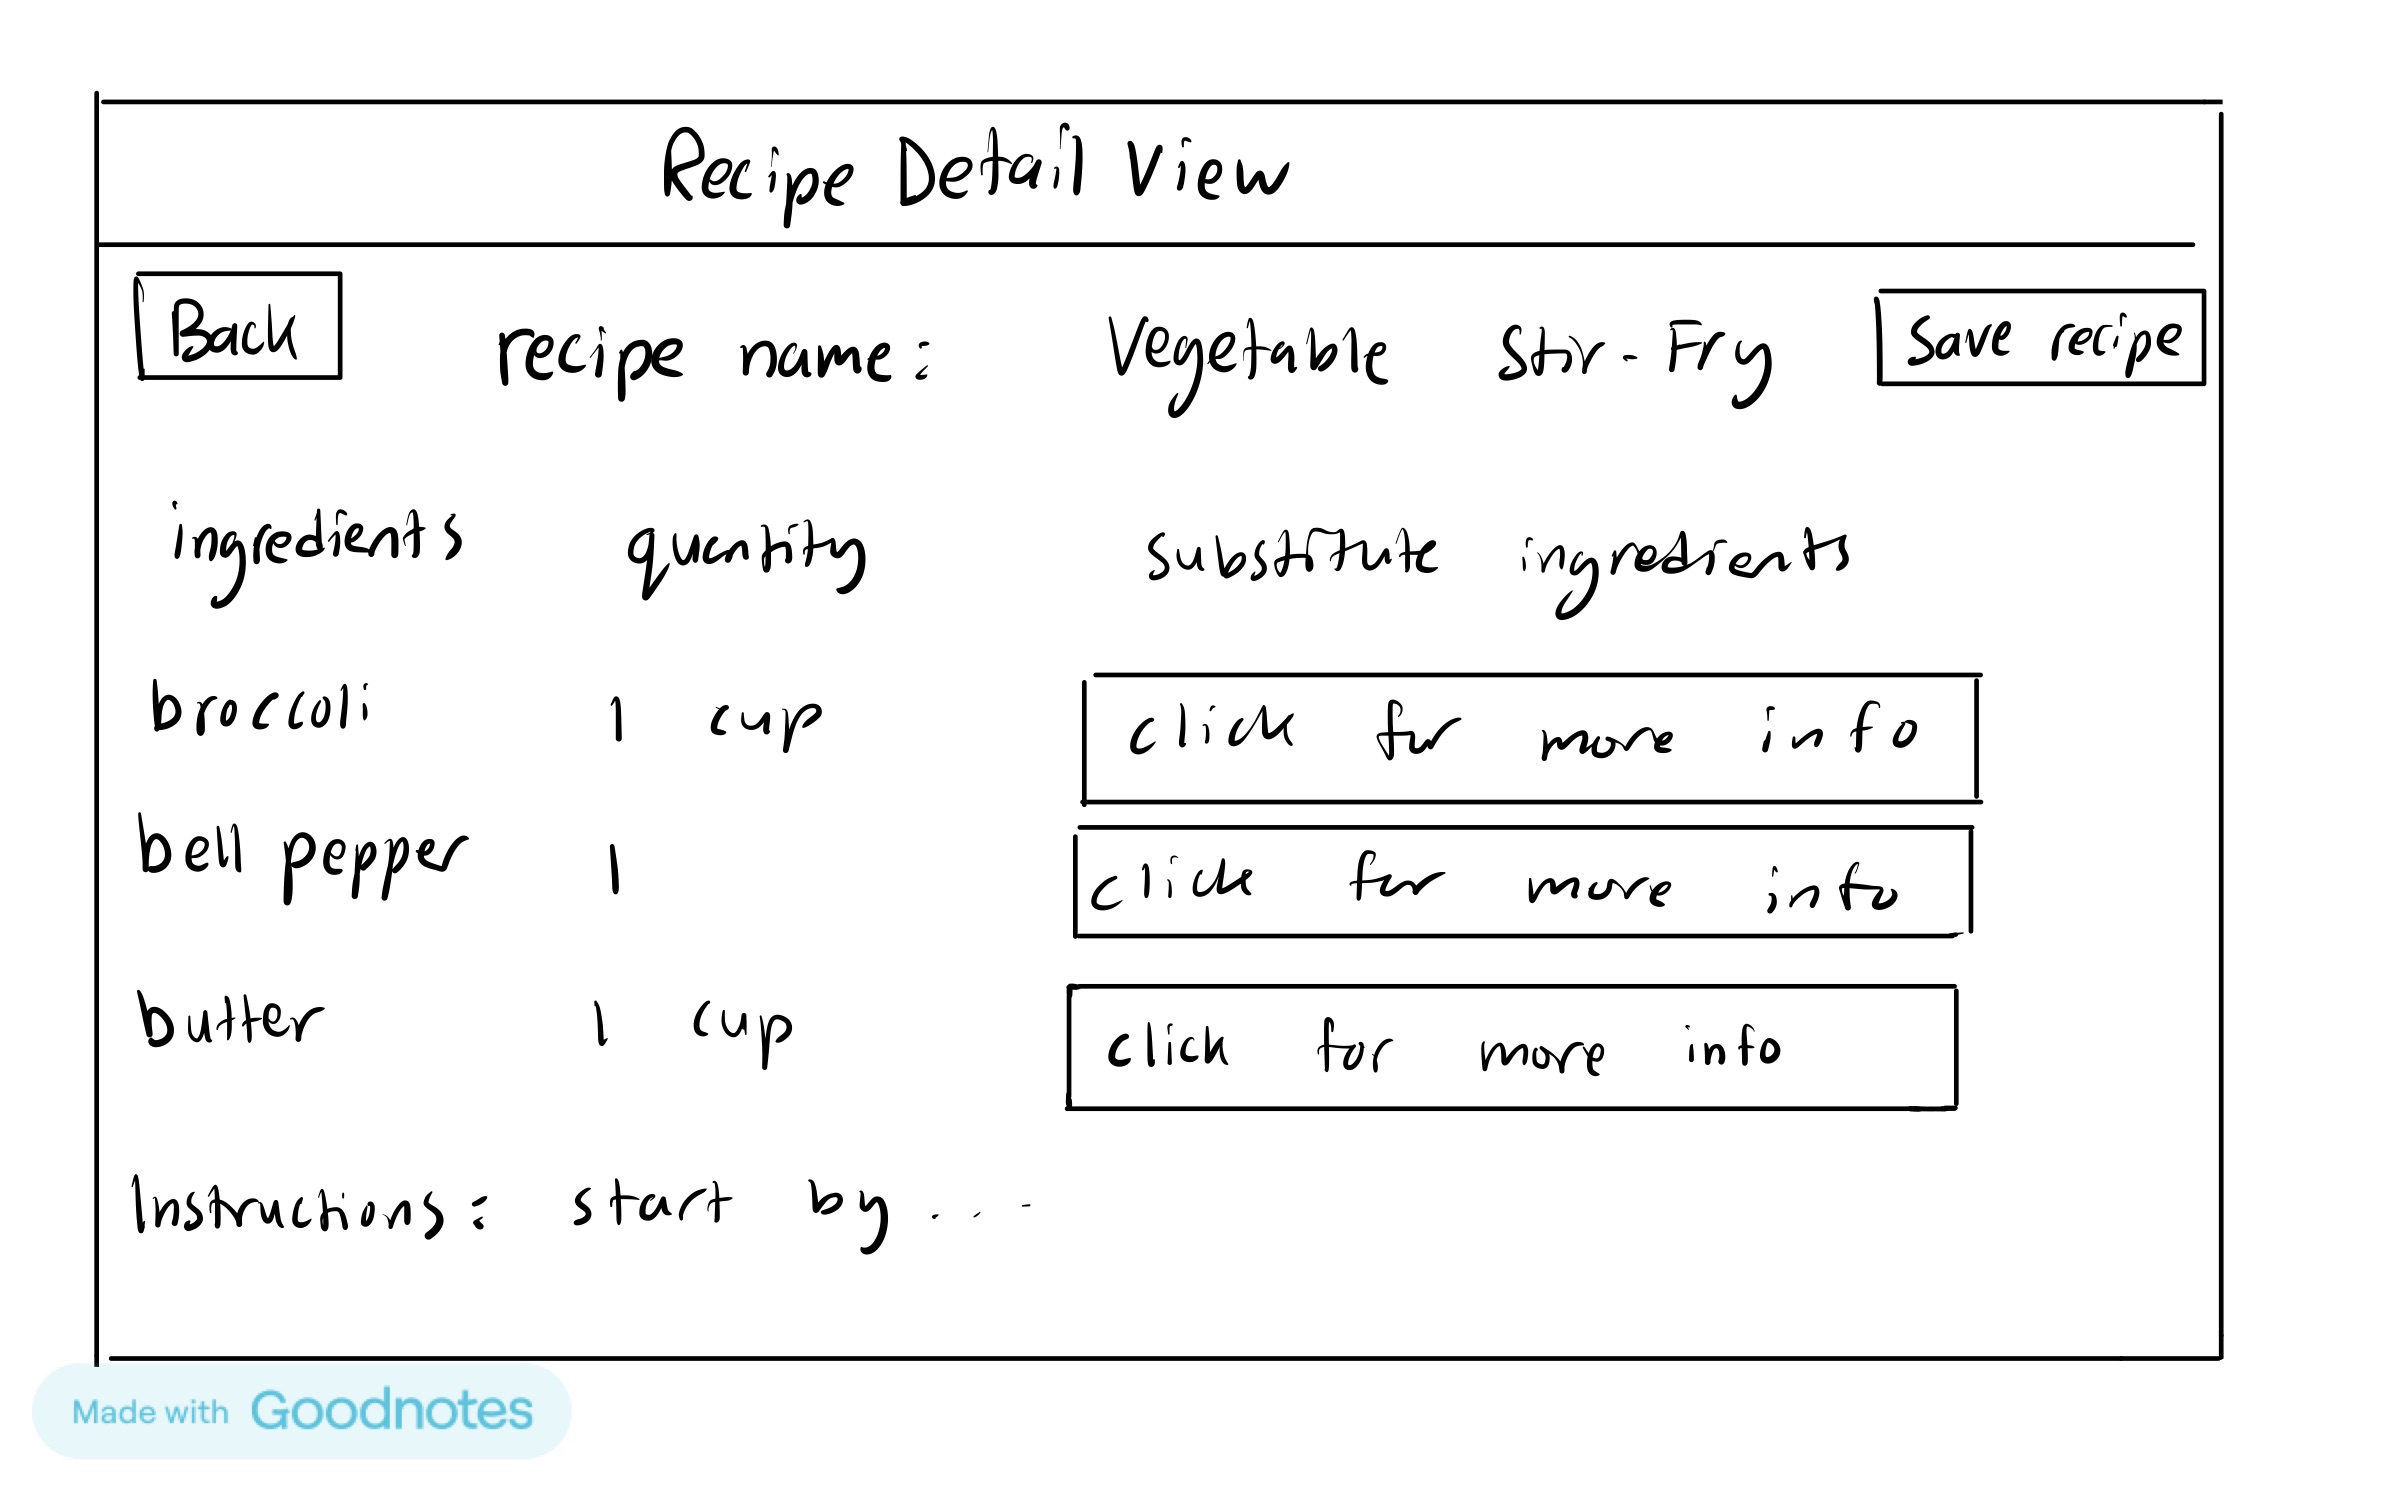 Recipe Detail View
Back recipe name: Vegetable Str-Fry save recipe
ingredients quantity substitute ingredients
broccoli 1 cup click for more info
bell pepper 1 click for more info
butter 1 cup click for more info
Instructions: start by....
Made with Goodnotes